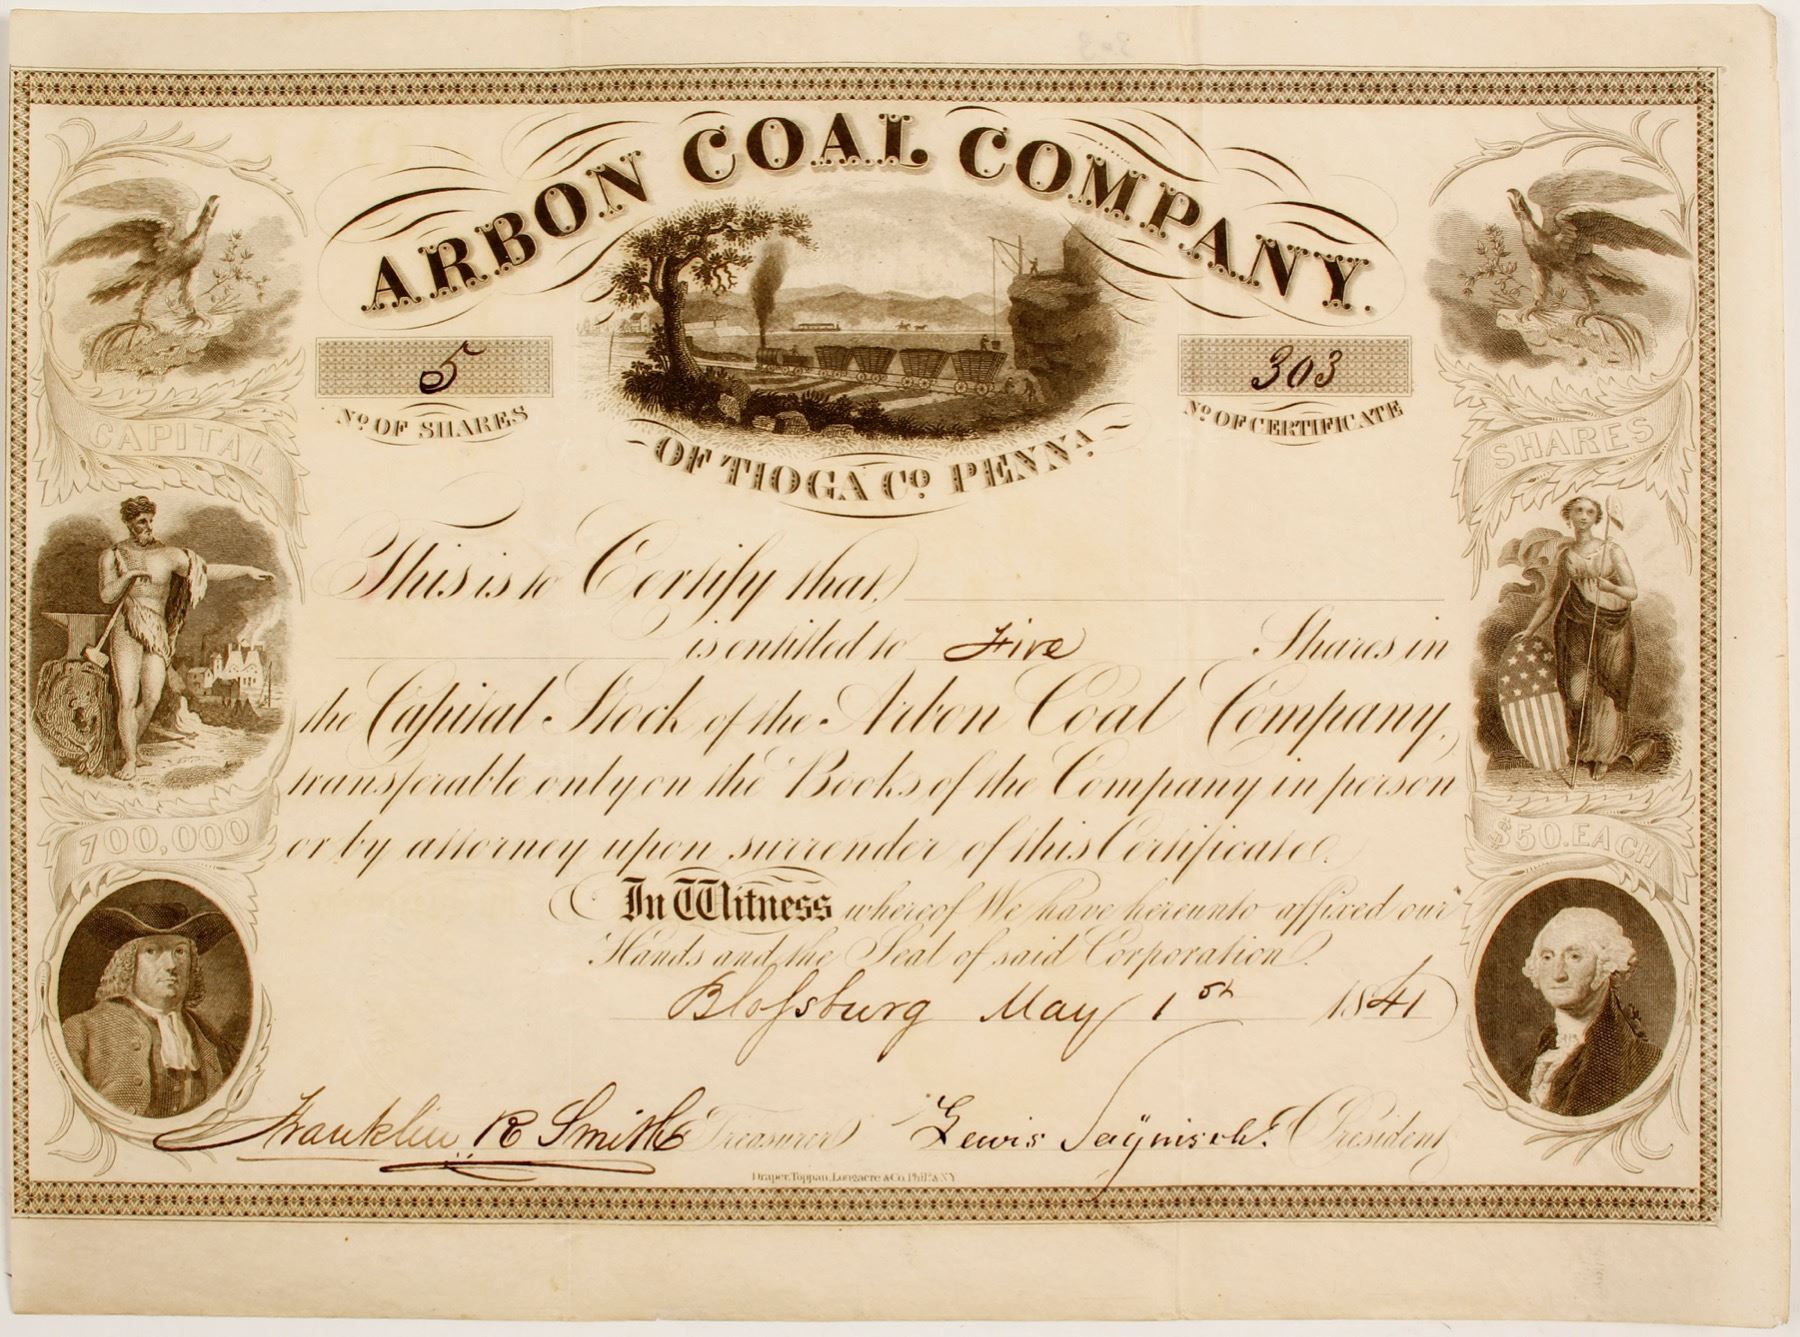 ARBON COAL COMPANY.
5
303
No OF SHARES
No OF CERTIFICATE
OF TIOGA Co PENNA.
CAPITAL
SHARES
This is to Certify that,
is entitled to Five Shares in
the Capital Stock of the Arbon Coal Company,
transferable only on the Books of the Company in person
or by attorney upon surrender of this Certificate.
700,000
$50. EACH
In Witness whereof We have hereunto affixed our
Hands and the Seal of said Corporation.
Blossburg May 1st 1841
Franklin R Smith Treasurer Lewis President
Draper, Toppan, Longacre & Co. Phila. & N.Y.